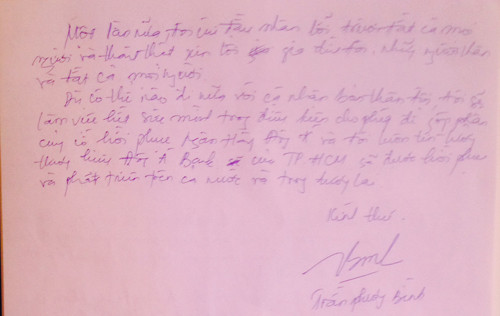 Một lần nữa, tôi xin tận nhân lỗi trước tất cả mọi
người và thành thật xin lỗi gia đình tôi, những người thân
và tất cả mọi người.
Dù có thế nào đi nữa với cá nhân bản thân tôi, tôi sẽ
làm việc hết sức mình trong điều kiện cho phép để góp phần
củng cố hồi phục Ngân Hàng Đông Á và tôi luôn tin tưởng
thương hiệu Đông Á Bank của TP HCM sẽ được hồi phục
và phát triển trên cả nước và trong tương lai.
Kính thư.
Trần Phương Bình